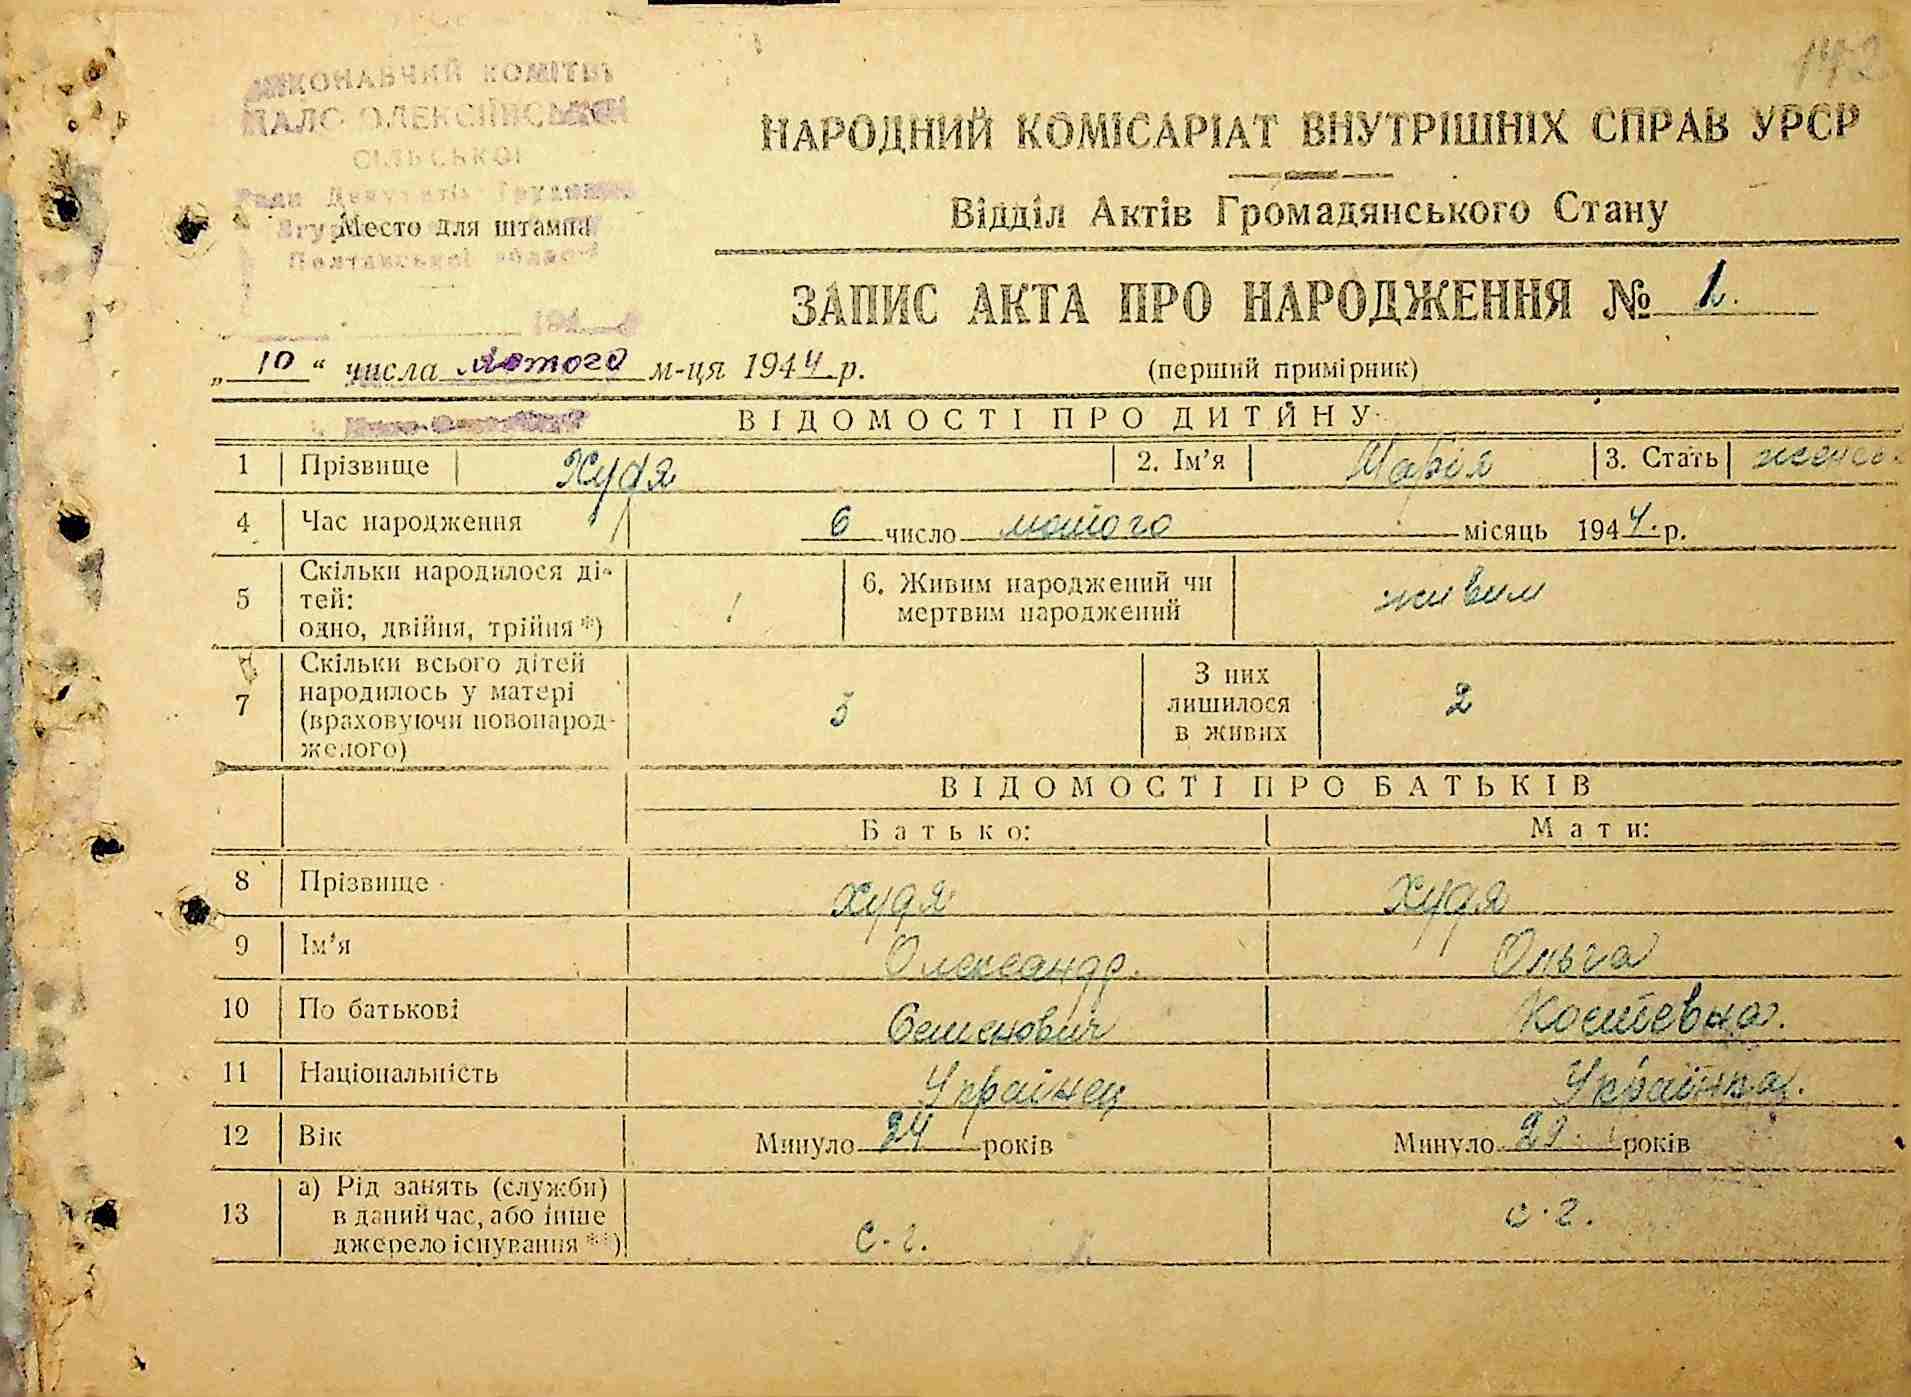 142
ВИКОНАВЧИЙ КОМІТЕТ
МАЛО-ОЛЕКСІЇВСЬКОЇ
СІЛЬСЬКОЇ
Ради Депутатів Трудящих
Место для штампа
Полтавської області
194
НАРОДНИЙ КОМІСАРІАТ ВНУТРІШНІХ СПРАВ УРСР
Відділ Актів Громадянського Стану
ЗАПИС АКТА ПРО НАРОДЖЕННЯ № 1.
„10“ числа лютого м-ця 1944 р.
(перший примірник)
ВІДОМОСТІ ПРО ДИТИНУ
1 Прізвище Худя 2. Ім’я Марія 3. Стать
4 Час народження 6 число лютого місяць 1944. р.
5 Скільки народилося ді-
тей:
одно, двійня, трійня *) 1
6. Живим народжений чи
мертвим народжений живим
7 Скільки всього дітей
народилось у матері
(враховуючи новонарод-
женого)
З них
лишилося
в живих 2
ВІДОМОСТІ ПРО БАТЬКІВ
Батько: Мати:
8 Прізвище Худя Худя
9 Ім’я Олександр. Ольга
10 По батькові Семенович Костевна.
11 Національність Українец Українка.
12 Вік Минуло 24 років Минуло років
13 а) Рід занять (служби)
в даний час, або інше
джерело існування **) с.г. с.г.